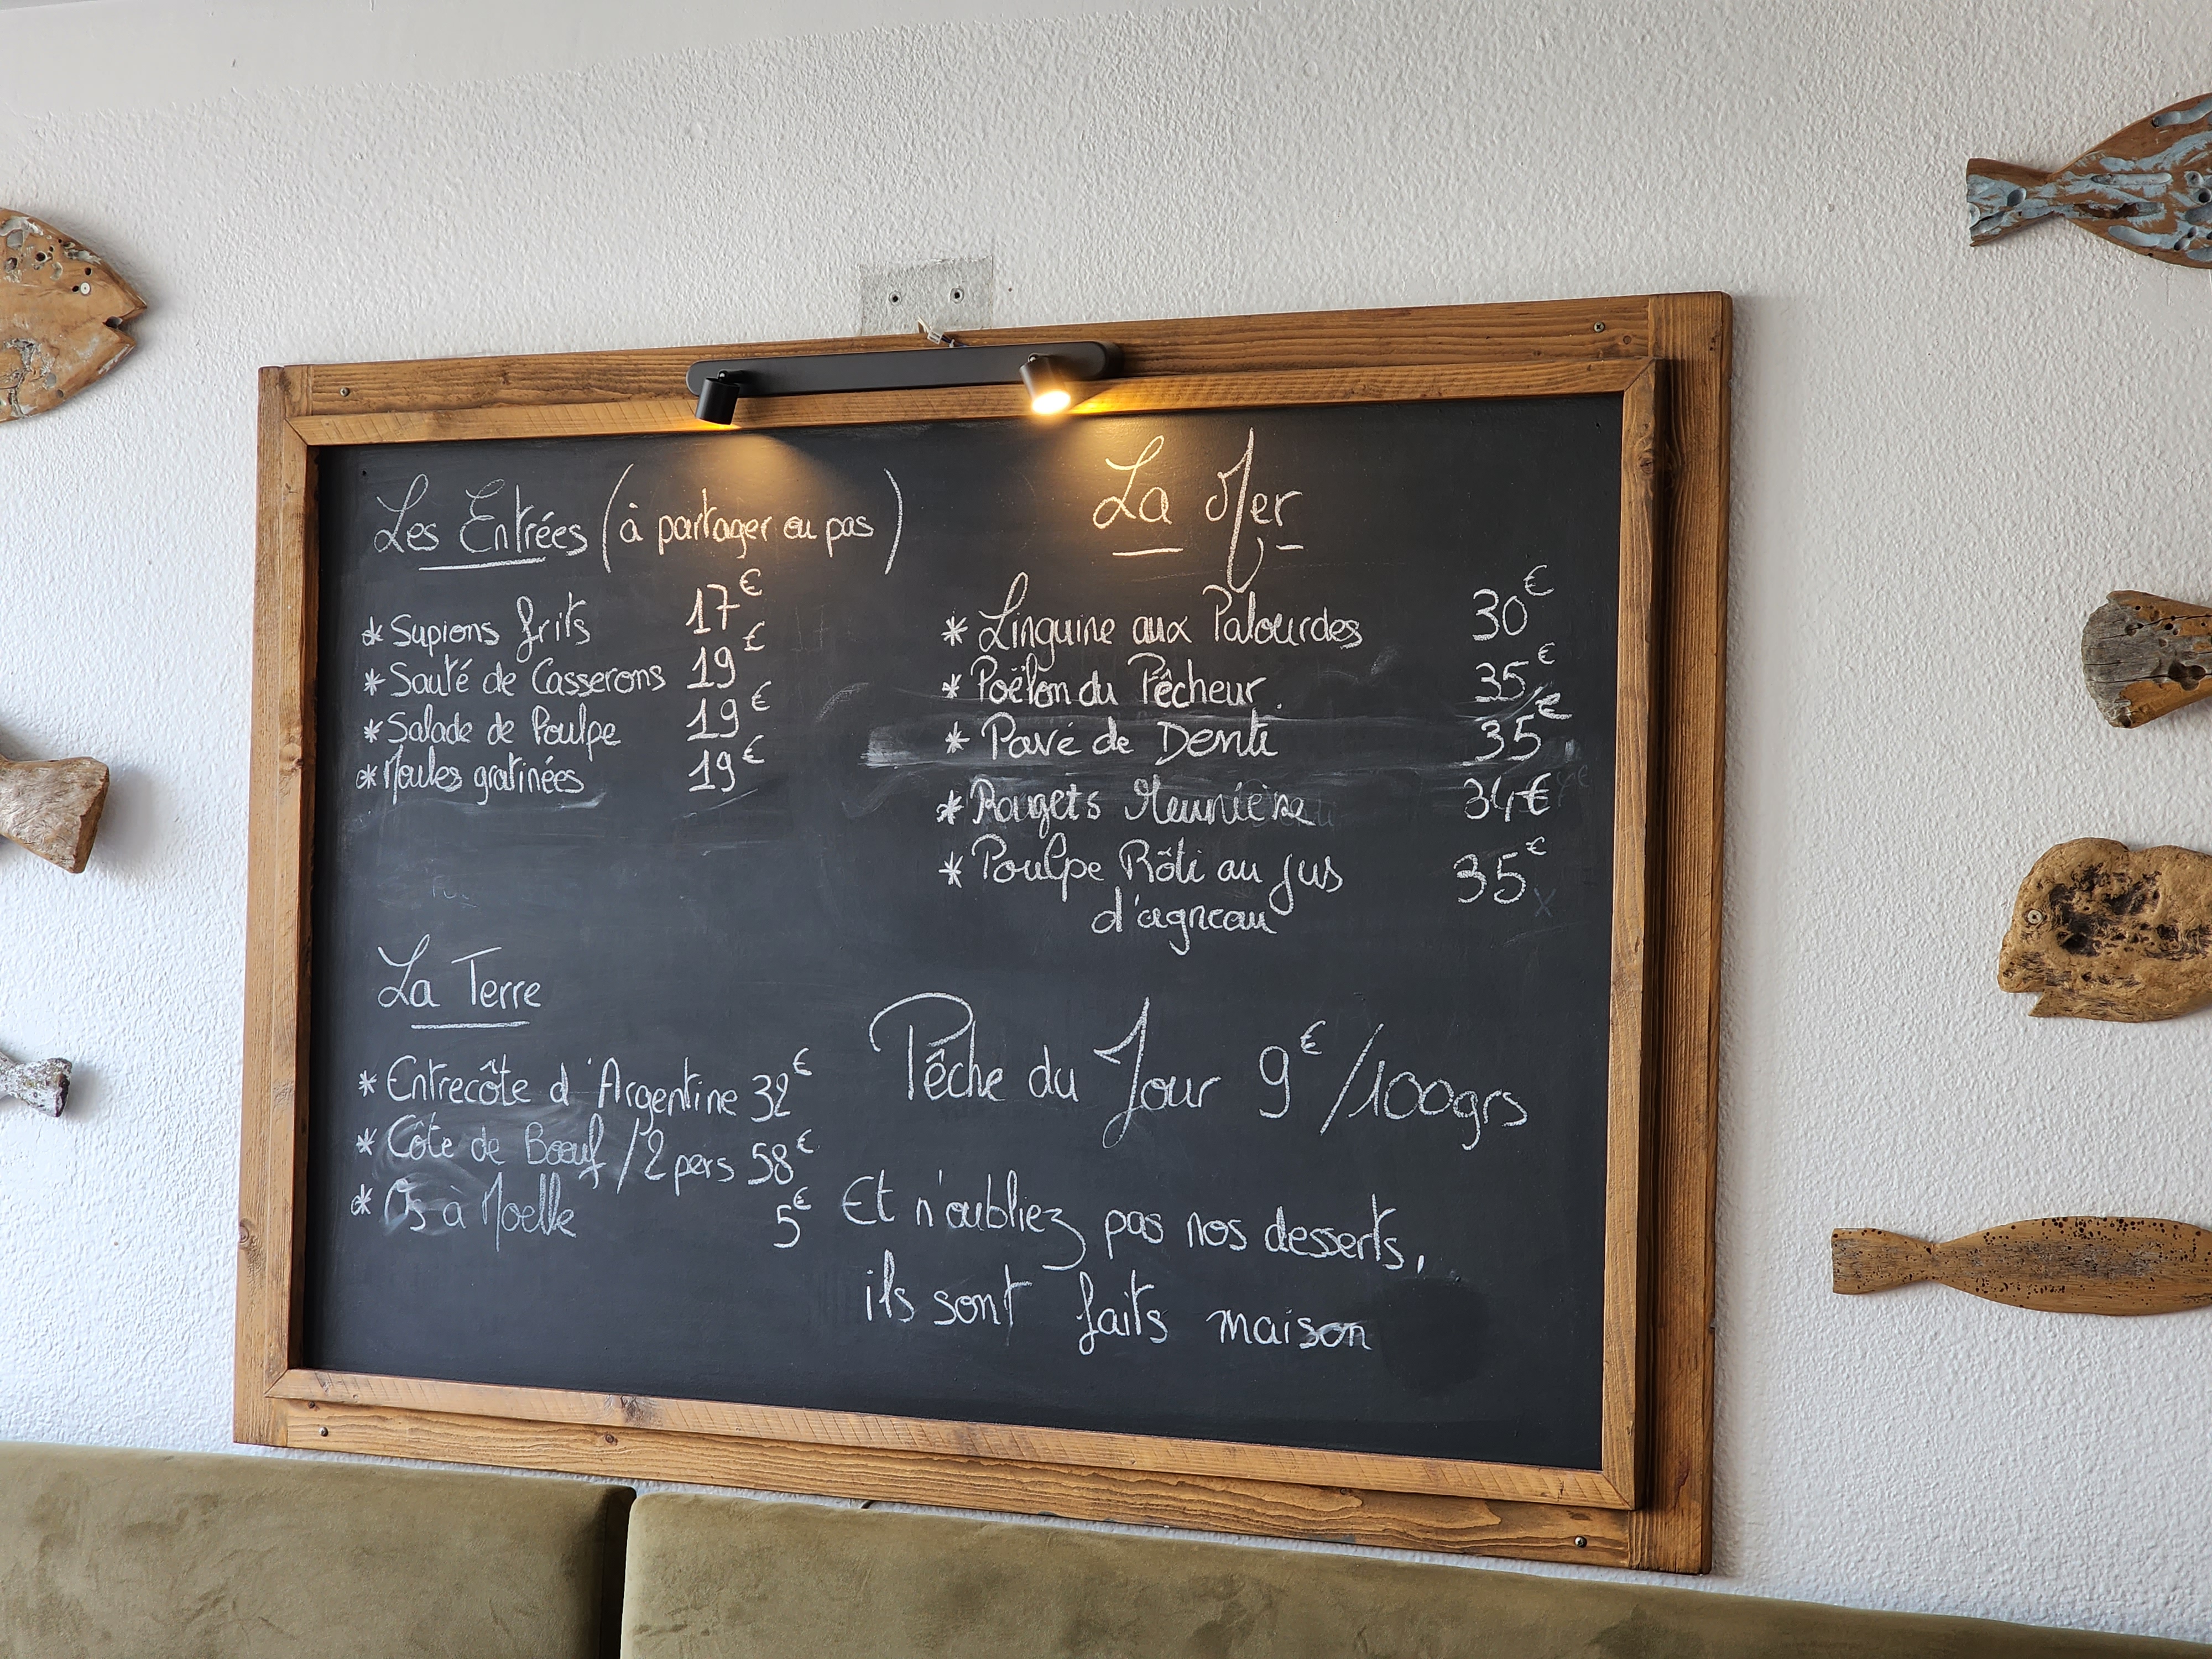 Les Entrées (à partager ou pas)
* Supions frits 17€
* Sauté de Casserons 19€
* Salade de Poulpe 19€
* Moules gratinées 19€
La Terre
* Entrecôte d'Argentine 32€
* Côte de Boeuf / 2 pers 58€
* Os à Moelle 5€
La Mer
* Linguine aux Palourdes 30€
* Poêlon du Pêcheur 35€
* Pavé de Denti 35€
* Rougets Meunière 34€
* Poulpe Rôti au jus 35€
d'agneau
Pêche du Jour 9€/100grs
Et n'oubliez pas nos desserts,
ils sont faits maison